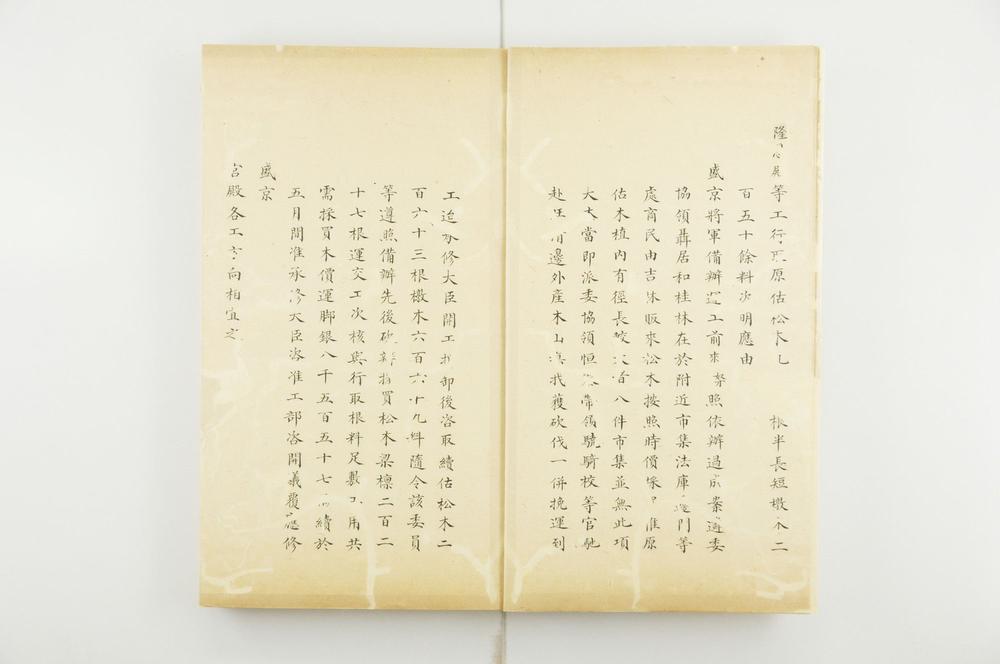 隆 等工行取原估松木七 根半長短橔木二
百五十餘料次明應由
盛京將軍備辦運工前來 照依辦過成案遴委
協領聶居和桂林在於附近市集法庫邊門等
處商民由吉 販來松木按照時價採 惟原
估木植內有徑長較大者八件市集並無此項
大木當即派委協領恒 帶領驍騎校等官馳
赴 邊外產木山 找獲砍伐一併挽運到
工迨承修大臣開工 卸後咨取續估松木二
百六十三根橔木六百六十九料隨令該委員
等遵照備辦先後砍 買松木梁檩二百二
十七根運交工次核與行取根料足敷 用共
需採買木價運腳銀八千五百五十七 續於
五月間准承修大臣咨准工部咨開議覆 修
盛京
宮殿各工方向相宜之